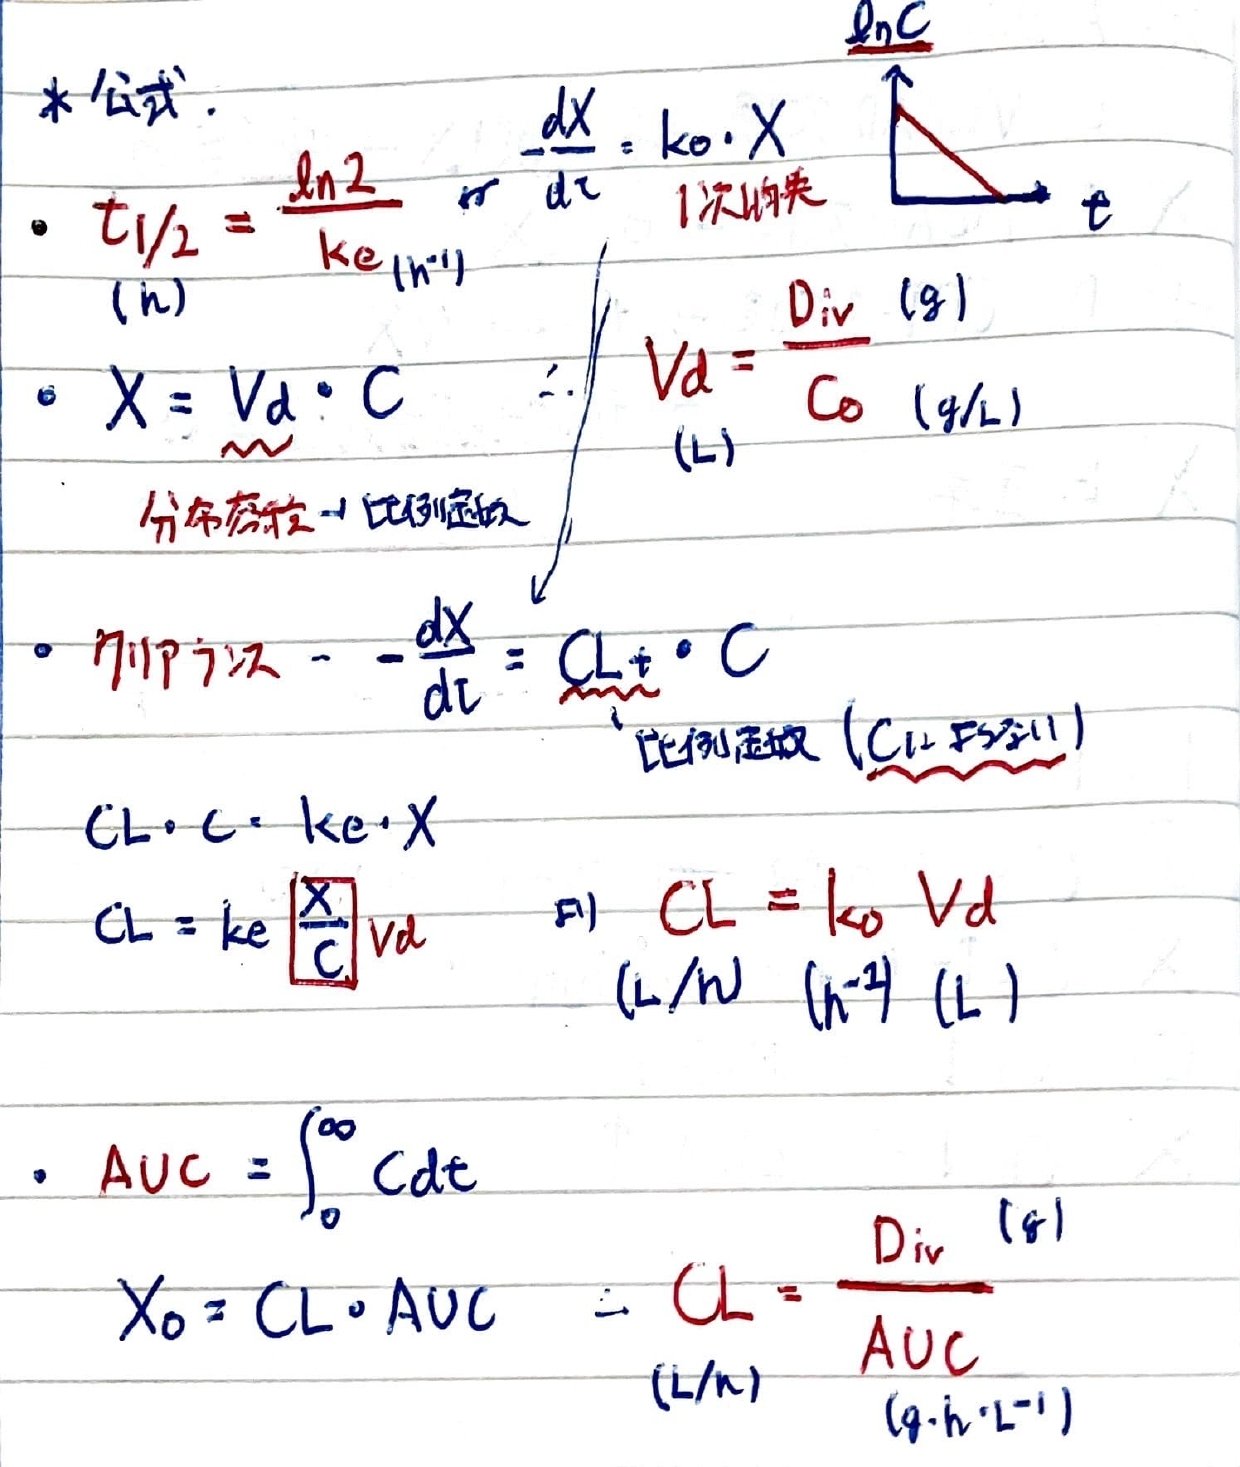 * 公式.
lnC
t
・ t1/2 = ln2 / ke (h⁻¹) or -dX/dt = ke・X
(h) 1次消失
・ X = Vd・C ∴ Vd = Div (g) / C0 (g/L)
(L)
分布容積 → 比例定数
・ クリアランス - -dX/dt = CLt・C
比例定数 (CLに
CL・C = ke・X
CL = ke X/C Vd CL = ke Vd
(L/h) (h⁻¹) (L)
・ AUC = ∫0∞ Cdt
X0 = CL・AUC ∴ CL = Div (g) / AUC
(L/h) (g・h・L⁻¹)